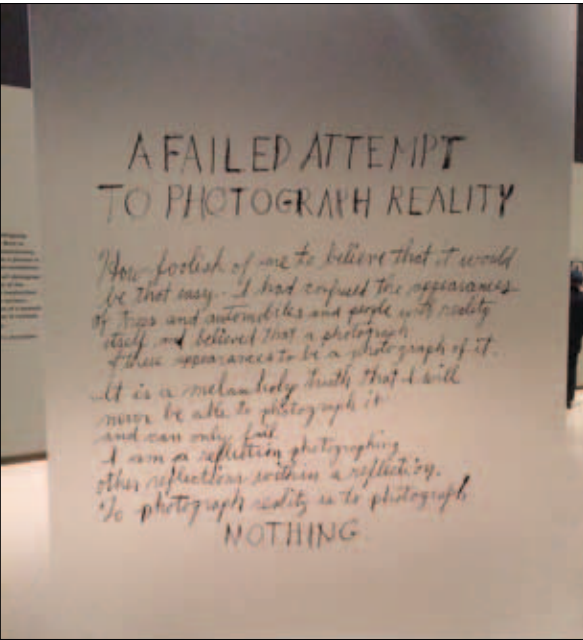 A FAILED ATTEMPT
TO PHOTOGRAPH REALITY
How foolish of me to believe that it would
be that easy. I had confused the appearances
of trees and automobiles and people with reality
itself and believed that a photograph
of these appearances to be a photograph of it.
It is a melancholy truth that I will
never be able to photograph it
and can only fail.
I am a reflection photographing
other reflections within a reflection.
To photograph reality is to photograph
NOTHING